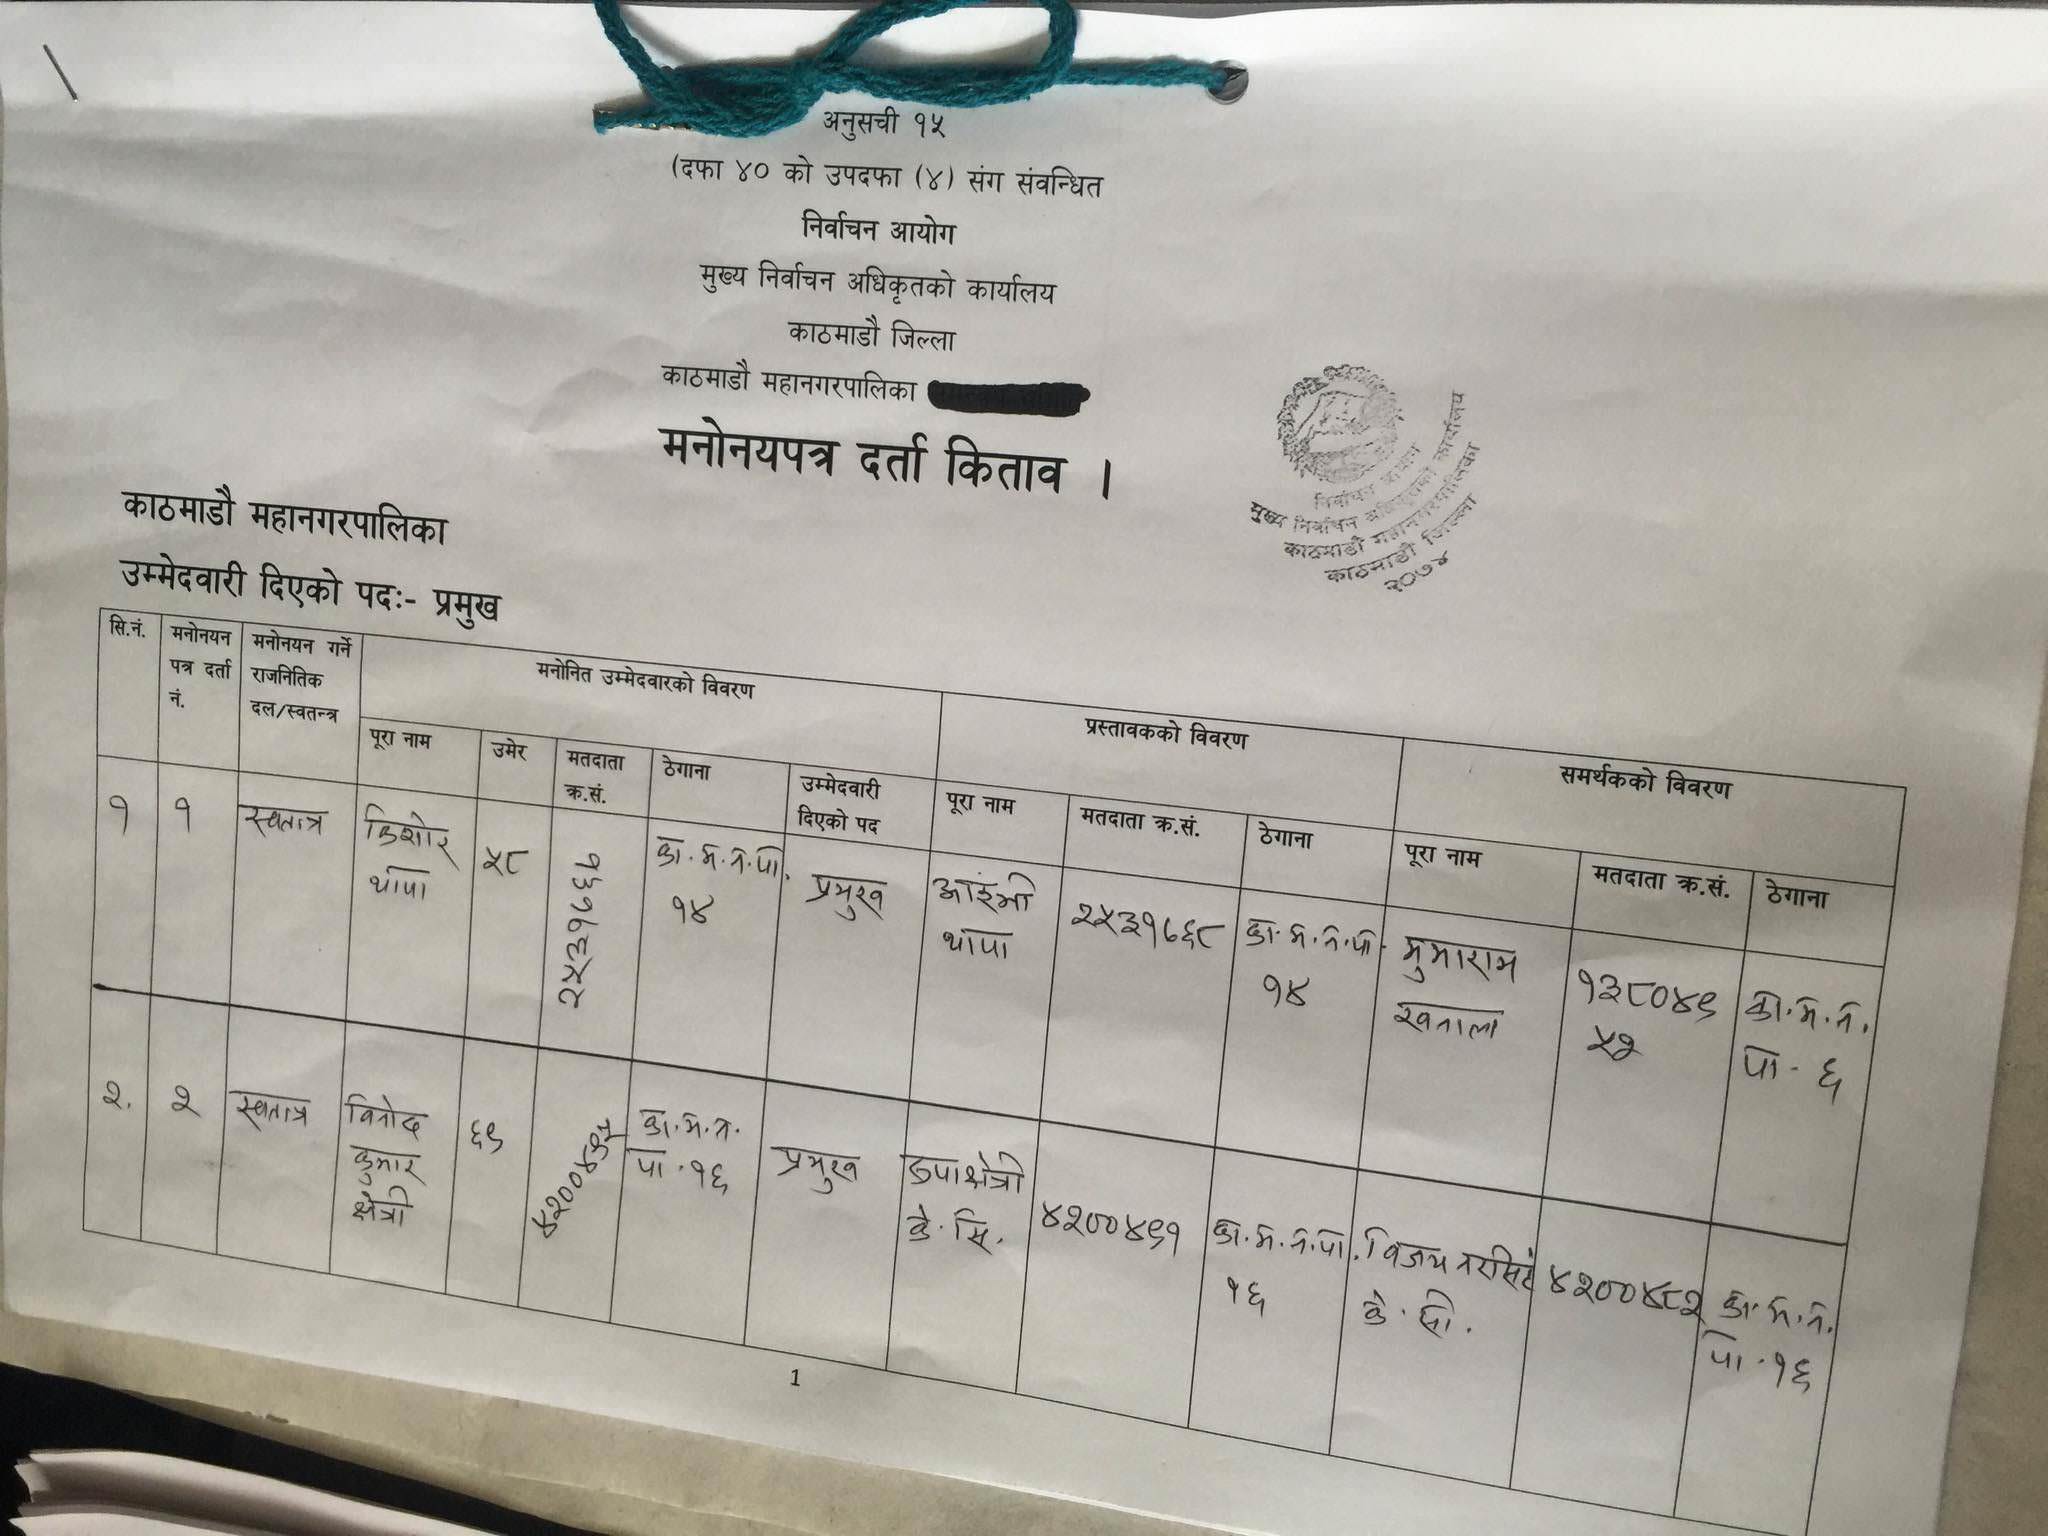 अनुसची १५
(दफा ४० को उपदफा (४) संग संवन्धित
निर्वाचन आयोग
मुख्य निर्वाचन अधिकृतको कार्यालय
काठमाडौ जिल्ला
काठमाडौ महानगरपालिका
मनोनयपत्र दर्ता किताव ।
निर्वाचन आयोग
मुख्य निर्वाचन अधिकृतको कार्यालय
काठमाडौ महानगरपालिका
काठमाडौ जिल्ला
२०७४
काठमाडौ महानगरपालिका
उम्मेदवारी दिएको पदः- प्रमुख
सि.नं.
मनोनयन
पत्र दर्ता
नं.
मनोनयन गर्ने
राजनितिक
दल/स्वतन्त्र
मनोनित उम्मेदवारको विवरण
प्रस्तावकको विवरण
समर्थकको विवरण
पूरा नाम
उमेर
मतदाता
क्र.सं.
ठेगाना
उम्मेदवारी
दिएको पद
पूरा नाम
मतदाता क्र.सं.
ठेगाना
पूरा नाम
मतदाता क्र.सं.
ठेगाना
१
१
स्वतन्त्र
किशोर
थापा
५८
२५३१७६७
का.म.न.पा.
१४
प्रमुख
थापा
२५३१७६८
का.म.न.पा.
१४
खनाल
१३८०४९
५२
का.म.न.
पा - ६
२.
२
स्वतन्त्र
विनोद
कुमार
क्षेत्री
६९
का.म.न.
पा.१६
प्रमुख
के.सि.
४२००४९१
का.म.न.पा.
१६
विजय नरसिंह
के.सी.
४२००४८२
का.म.न.
पा.१६
1